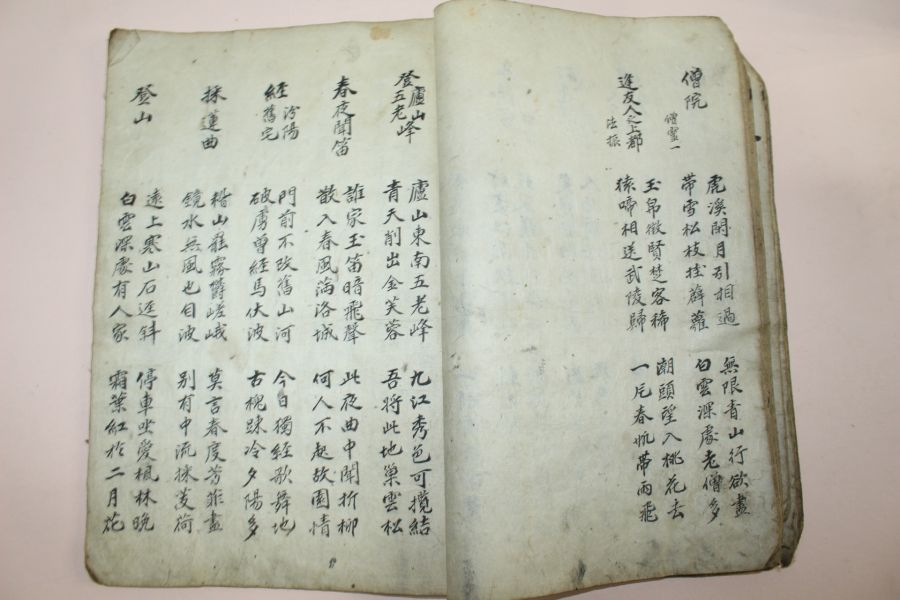 僧院
僧靈一
虎溪閒月引相過
帶雪松枝掛薜蘿
無限青山行欲盡
白雲深處老僧多
逢友人之上都
法振
玉帛徵賢楚客稀
猿啼相送武陵歸
潮頭望入桃花去
一片春帆帶雨飛
登廬山五老峰
廬山東南五老峰
青天削出金芙蓉
九江秀色可攬結
吾將此地巢雲松
春夜聞笛
誰家玉笛暗飛聲
散入春風滿洛城
此夜曲中聞折柳
何人不起故園情
經汾陽舊宅
門前不改舊山河
破虜曾經馬伏波
今日獨經歌舞地
古槐踈冷夕陽多
採蓮曲
稽山罷霧鬱嵯峨
鏡水無風也自波
莫言春度芳菲盡
別有中流採芰荷
登山
遠上寒山石逕斜
白雲深處有人家
停車坐愛楓林晚
霜葉紅於二月花